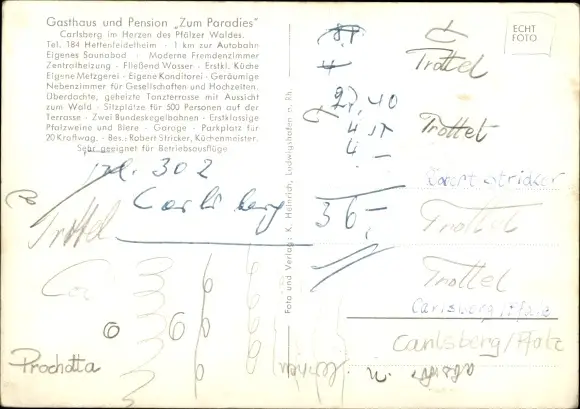 Gasthaus und Pension „Zum Paradies"
Carlsberg im Herzen des Pfälzer Waldes.
Tel. 184 Hettenleidelheim - 1 km zur Autobahn
Eigenes Saunabad - Moderne Fremdenzimmer
Zentralheizung - Fließend Wasser - Erstkl. Küche
Eigene Metzgerei - Eigene Konditorei - Geräumige
Nebenzimmer für Gesellschaften und Hochzeiten.
Überdachte, geheizte Tanzterrasse mit Aussicht
zum Wald - Sitzplätze für 500 Personen auf der
Terrasse - Zwei Bundeskegelbahnen - Erstklassige
Pfalzweine und Biere - Garage - Parkplatz für
20 Kraftwag. - Bes.: Robert Stricker, Küchenmeister.
Sehr geeignet für Betriebsausflüge
302
Carlsberg
Trottel
Prochotta
Foto und Verlag: K. Heinrich, Ludwigshafen a. Rh.
ECHT
FOTO
Trottel
Trottet
36,-
Trottel
Trottel
Carlsberg/Pfalz